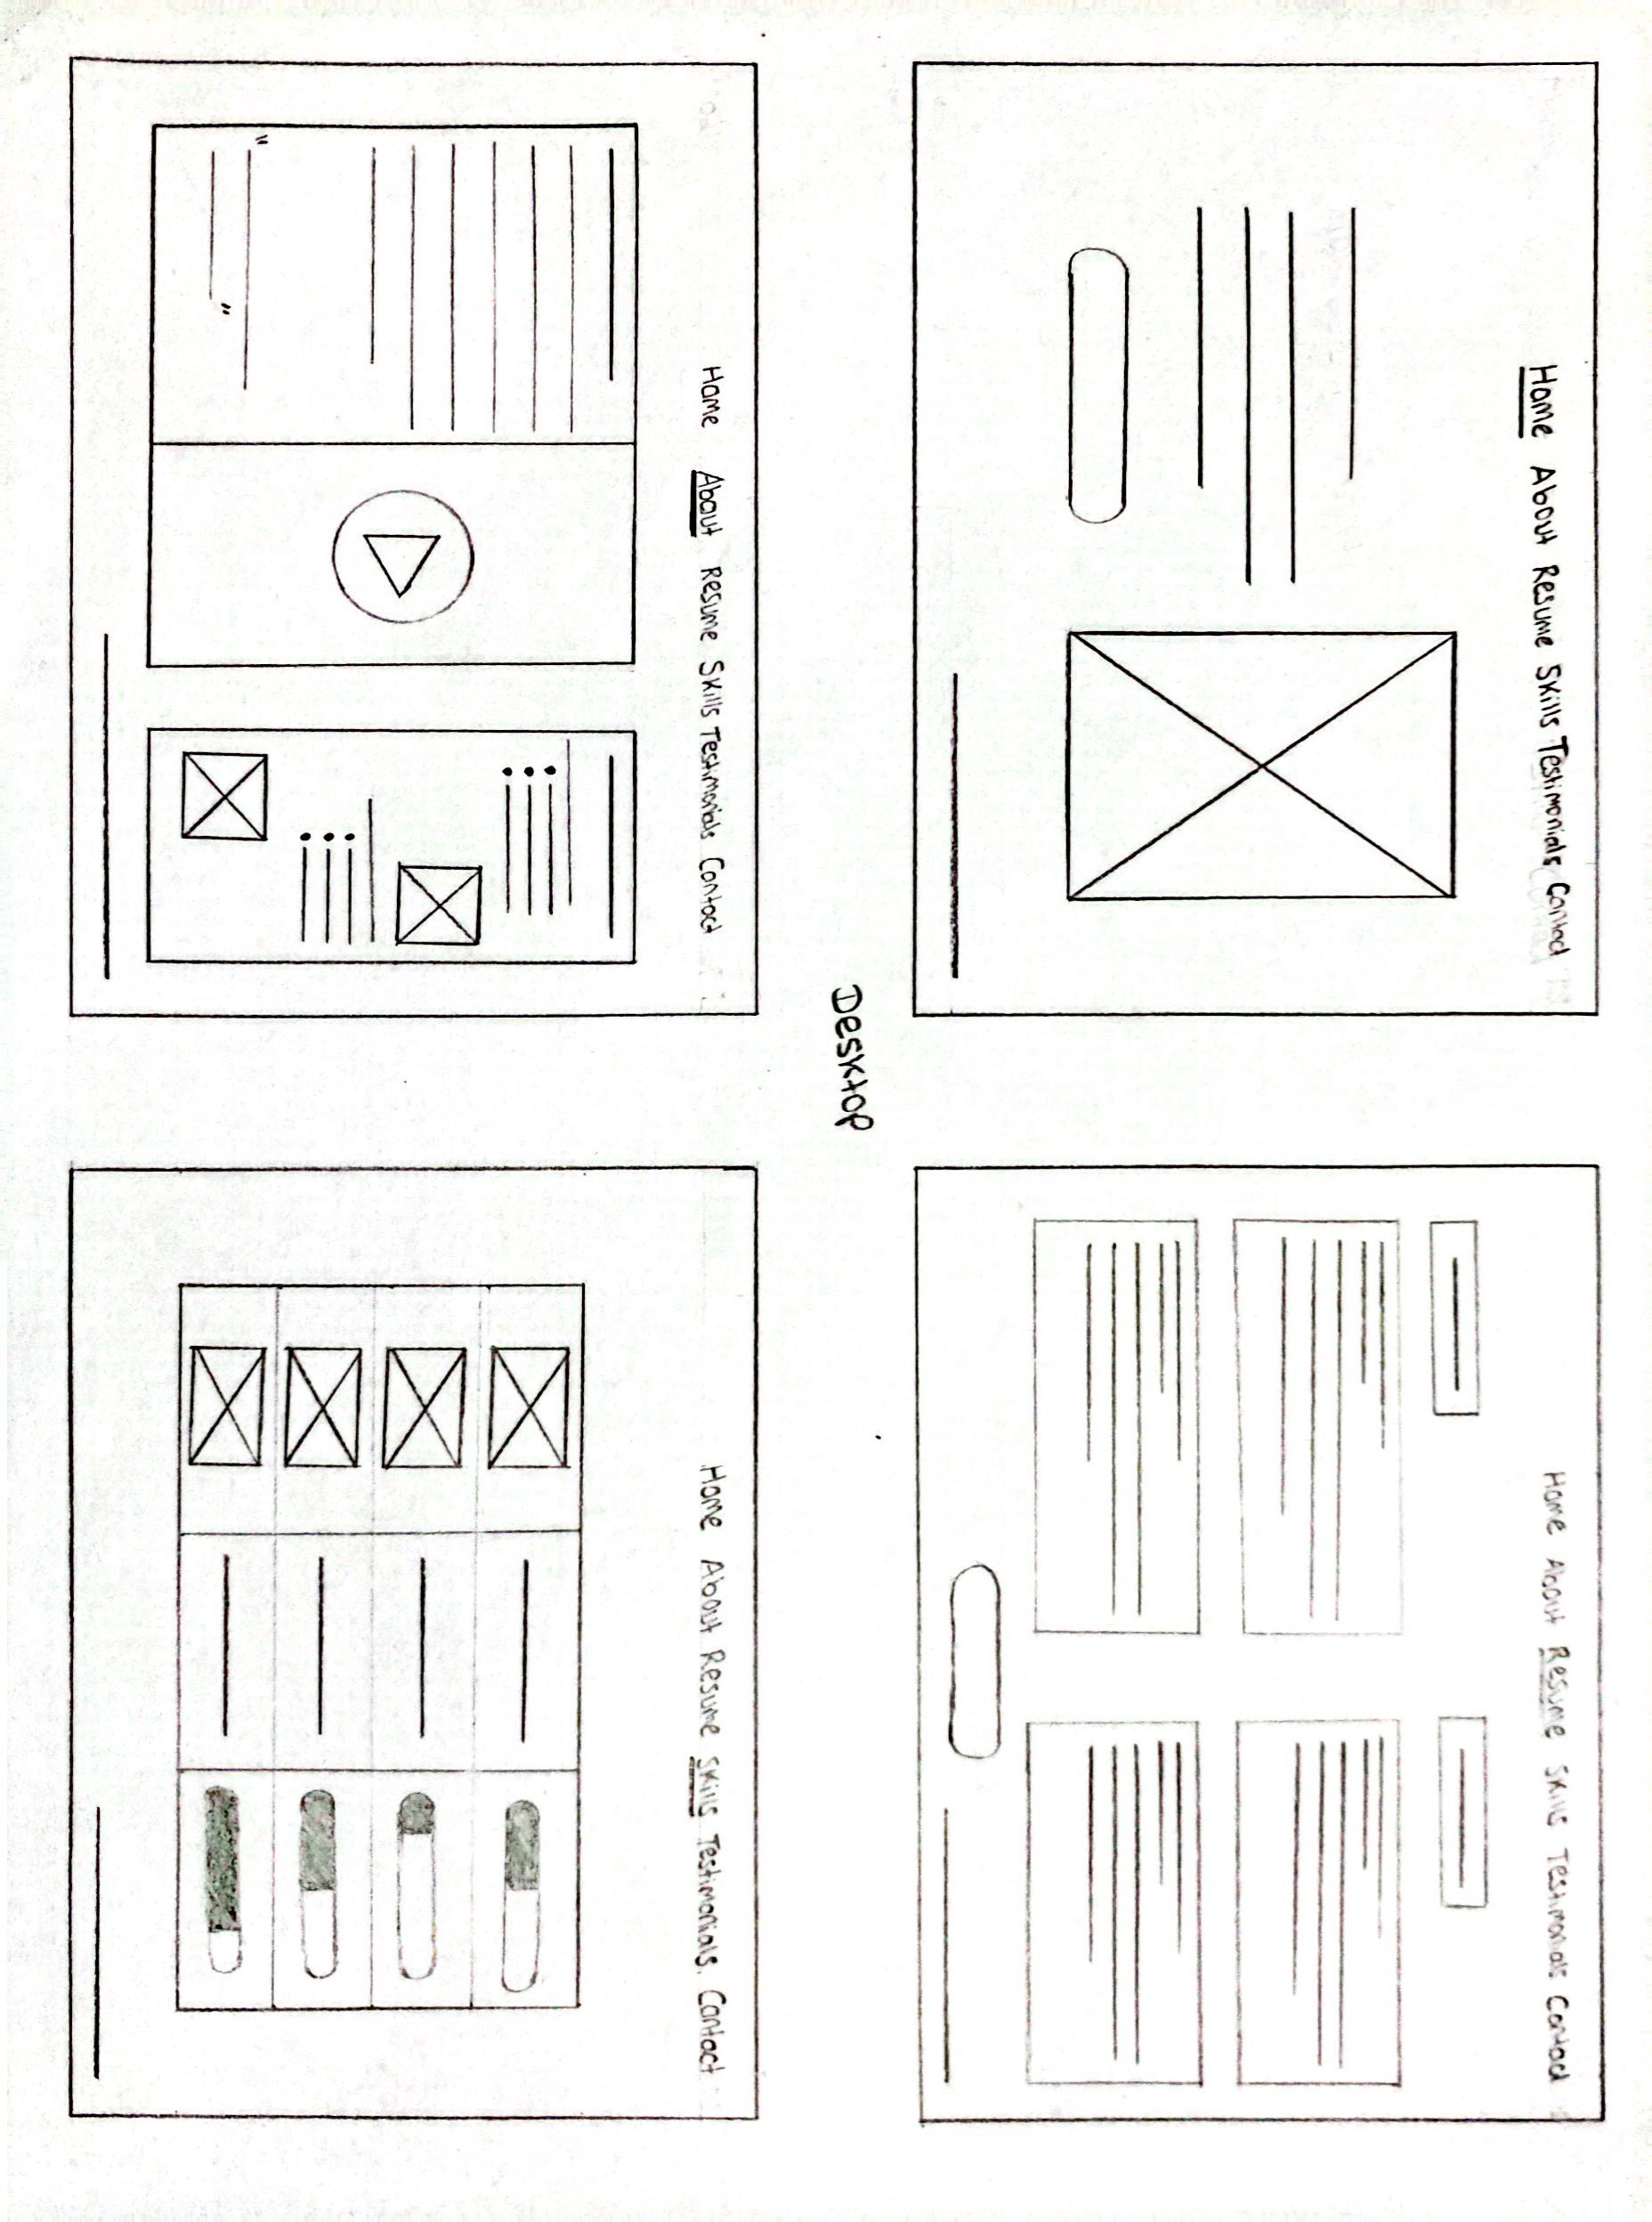 Home About Resume Skills Testimonials Contact
Home About Resume Skills Testimonials Contact
Desktop
Home About Resume Skills Testimonials Contact
" "
Home About Resume Skills Testimonials. Contact